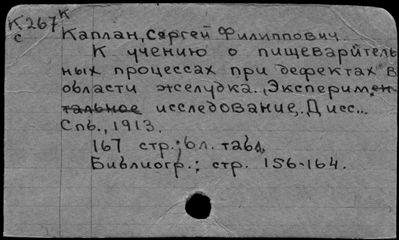 К 267 К
с
Каплан, Сергей Филиппович
К учению о пищеварител
ных процессах при дефектах в
области желудка. Эксперимен
тальное исследование. Дисс...
Спб., 1913.
167 стр.; 6 л. табл.
Библиогр.: стр. 156-164.